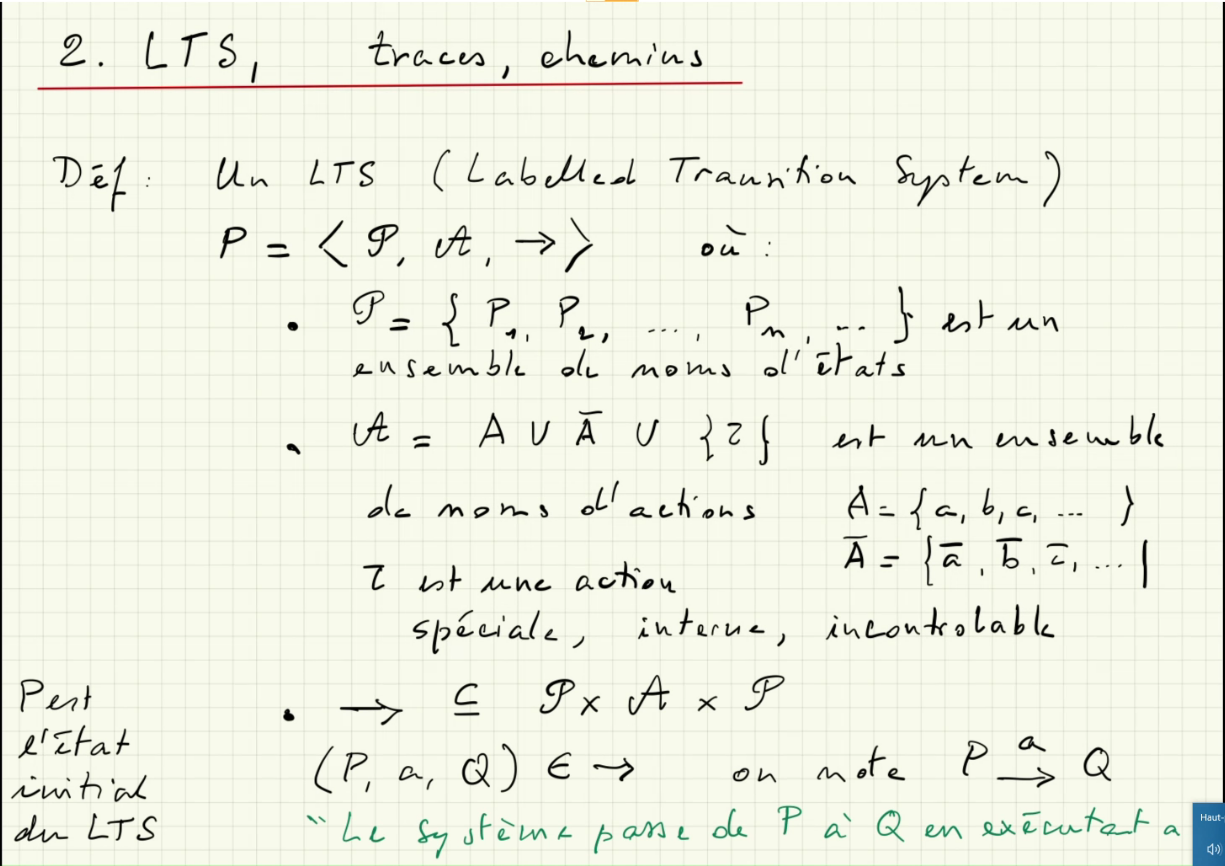 2. LTS, traces, chemins
Déf : Un LTS (Labelled Transition System)
P = < 𝒫, 𝒜, → > où :
• 𝒫 = { P₁, P₂, ..., Pₙ, ... } est un
ensemble de noms d'états
• 𝒜 = A ∪ Ā ∪ {τ} est un ensemble
de noms d'actions A = {a, b, c, ... }
Ā = {ā, b̄, c̄, ... }
τ est une action
spéciale, interne, incontrolable
P est
l'état
initial
du LTS
• → ⊆ 𝒫 × 𝒜 × 𝒫
(P, a, Q) ∈ → on note P —a→ Q
"Le système passe de P à Q en exécutant a
Haut-